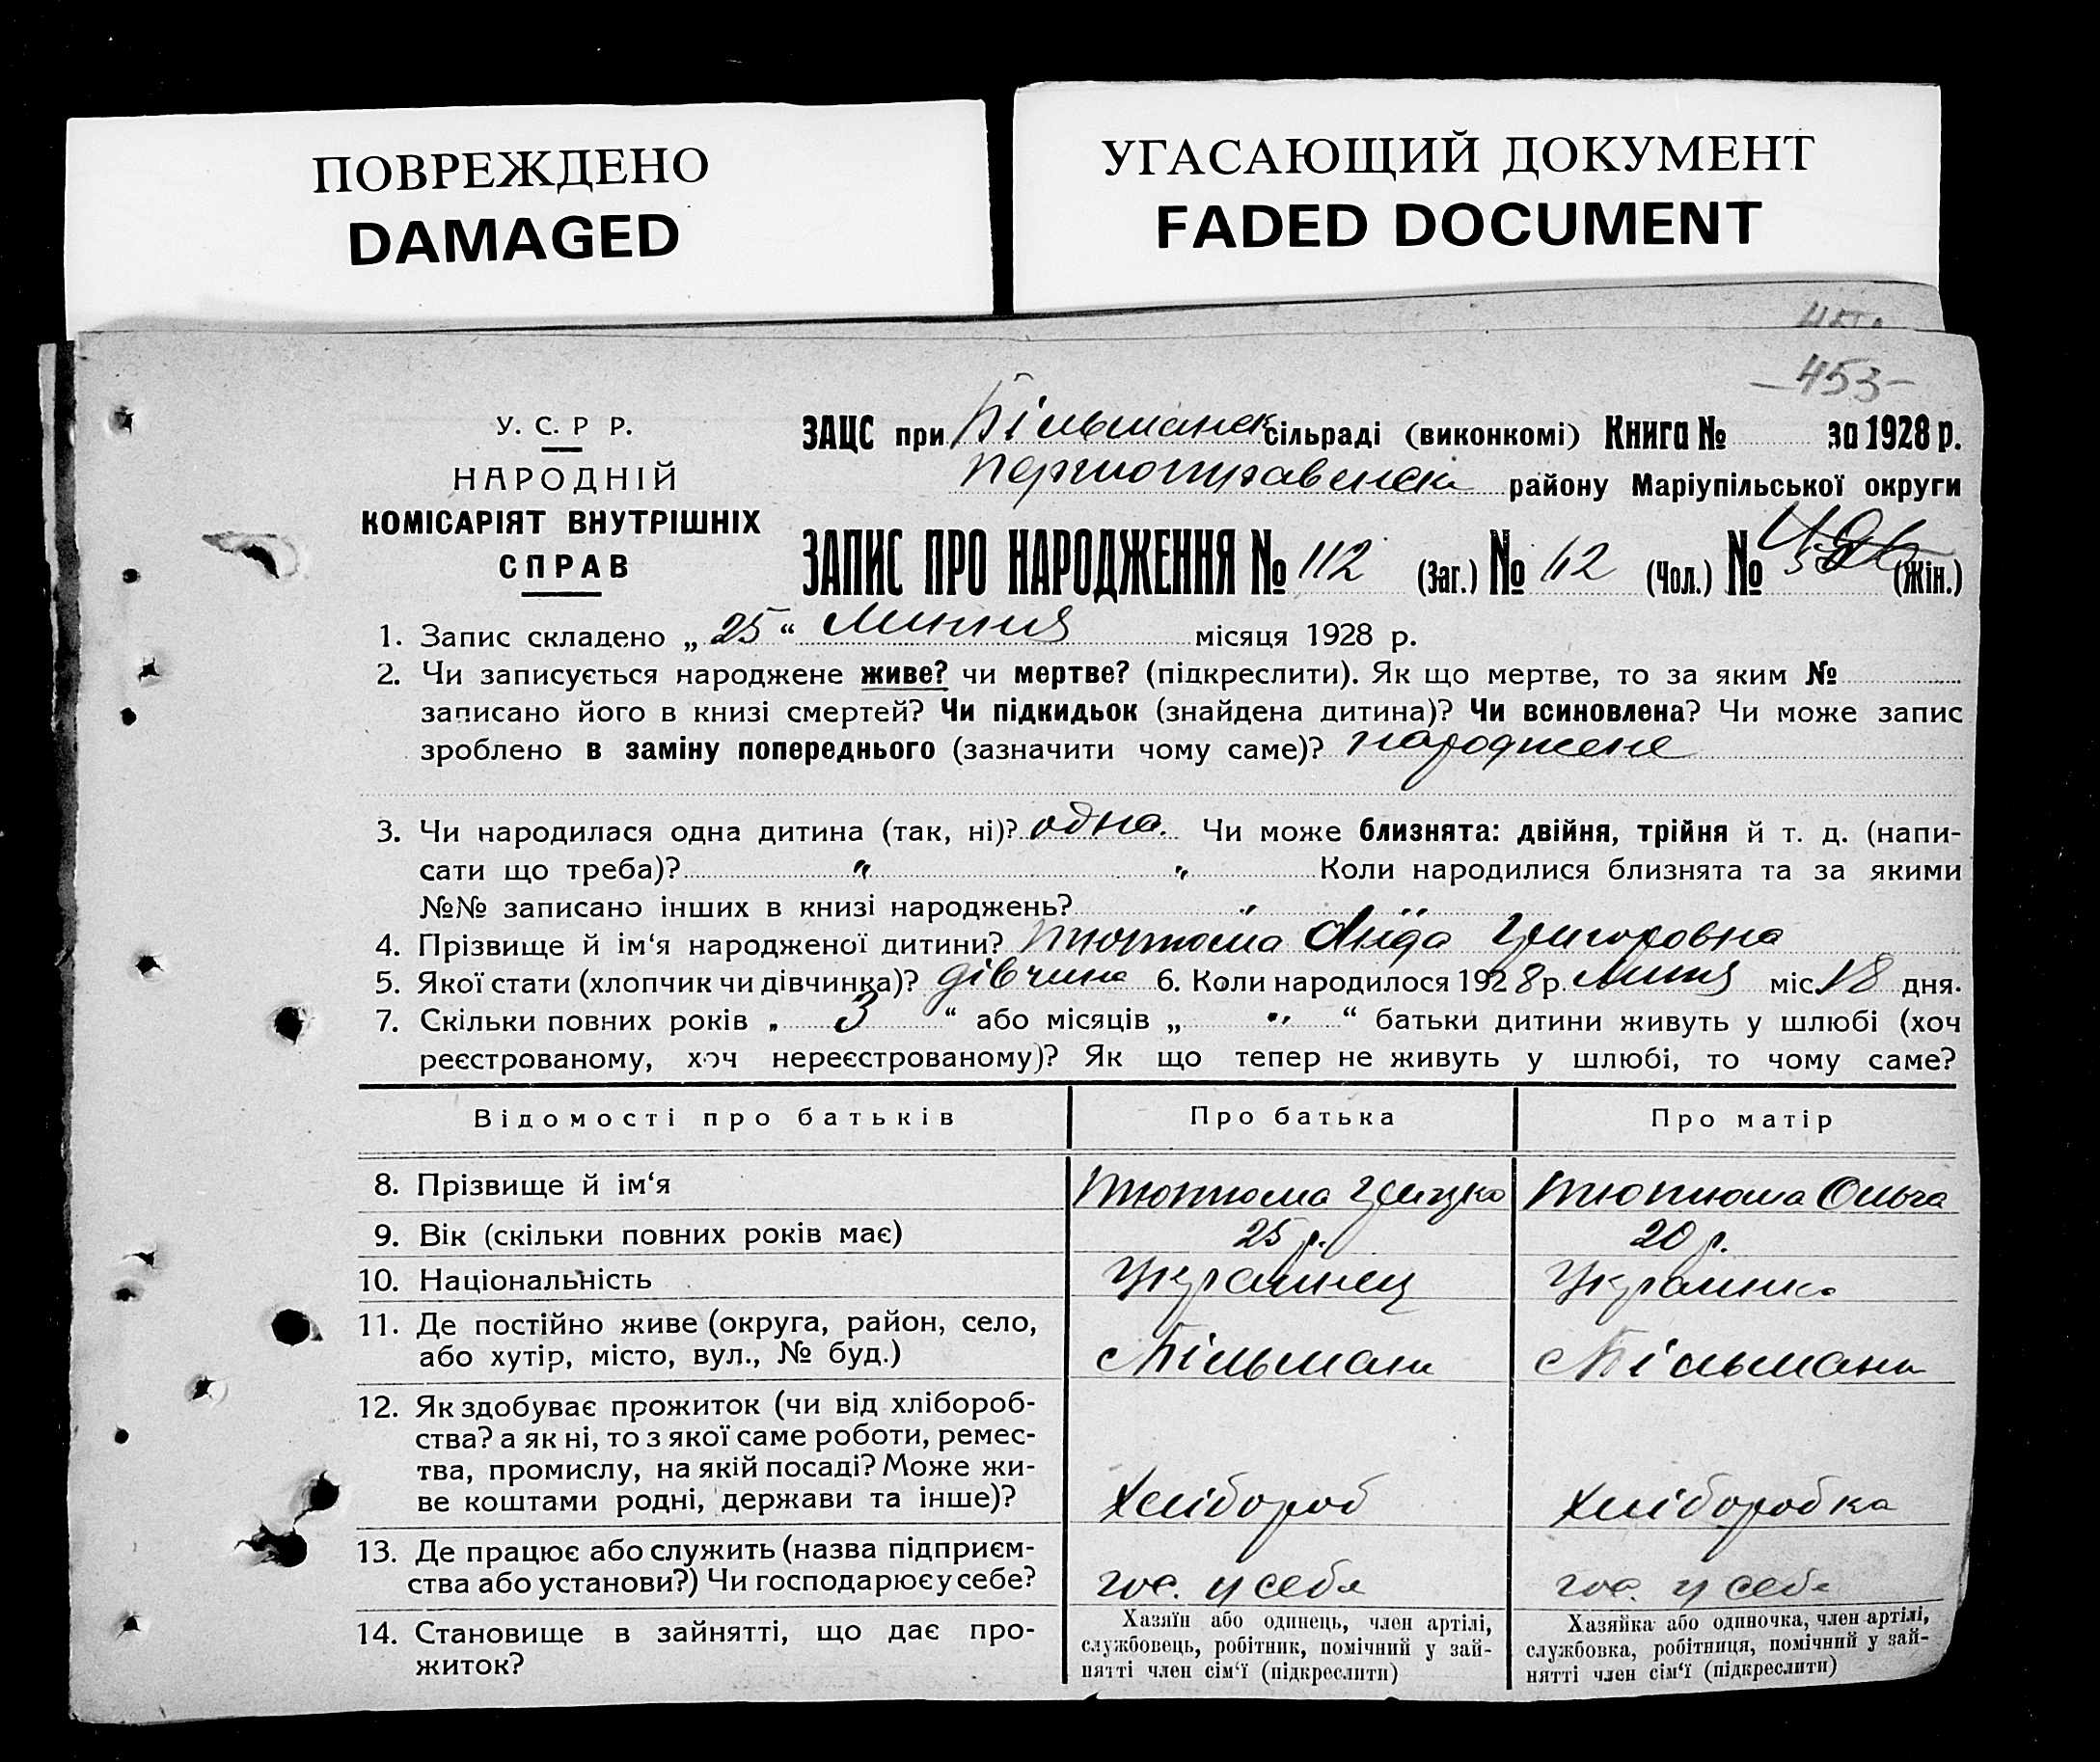 ПОВРЕЖДЕНО
DAMAGED
УГАСАЮЩИЙ ДОКУМЕНТ
FADED DOCUMENT
—453—
У. С. Р Р.
НАРОДНІЙ
КОМІСАРІЯТ ВНУТРІШНІХ
СПРАВ
ЗАЦС при Більманск сільраді (виконкомі) Книга № за 1928 р.
першотравенськ району Маріупільської округи
ЗАПИС ПРО НАРОДЖЕННЯ № 112 (Заг.) № 62 (Чол.) № (Жін.)
1. Запис складено „ 25 “ Липня місяця 1928 р.
2. Чи записується народжене живе? чи мертве? (підкреслити). Як що мертве, то за яким №
записано його в книзі смертей? Чи підкидьок (знайдена дитина)? Чи всиновлена? Чи може запис
зроблено в заміну попереднього (зазначити чому саме)? народжене
3. Чи народилася одна дитина (так, ні)? одна. Чи може близнята: двійня, трійня й т. д. (напи-
сати що треба)? „ „ Коли народилися близнята та за якими
№№ записано інших в книзі народжень? „
4. Прізвище й ім‘я народженої дитини? Тютюма Ліда Григоровна
5. Якої стати (хлопчик чи дівчинка)? дівчина 6. Коли народилося 1928 р. Липня міс. 18 дня.
7. Скільки повних років „ 3 “ або місяців „ „ “ батьки дитини живуть у шлюбі (хоч
реєстрованому, хоч нереєстрованому)? Як що тепер не живуть у шлюбі, то чому саме?
Відомості про батьків Про батька Про матір
8. Прізвище й ім‘я Тютюма Грицко Тютюма Ольга
9. Вік (скільки повних років має) 25 р. 20 р.
10. Національність Українец Українка
11. Де постійно живе (округа, район, село,
або хутір, місто, вул., № буд.) с Більманк с Більманк
12. Як здобуває прожиток (чи від хлібороб-
ства? а як ні, то з якої саме роботи, ремес-
тва, промислу, на якій посаді? Може жи-
ве коштами родні, держави та інше)? Хлібороб Хліборобка
13. Де працює або служить (назва підприєм-
ства або установи?) Чи господарює у себе? гос. у себе гос. у себе
14. Становище в зайнятті, що дає про-
житок?
Хазяїн або одинець, член артілі,
службовець, робітник, помічний у зай-
нятті член сім‘ї (підкреслити)
Хазяйка або одиночка, член артілі,
службовка, робітниця, помічний у зай-
нятті член сім‘ї (підкреслити)